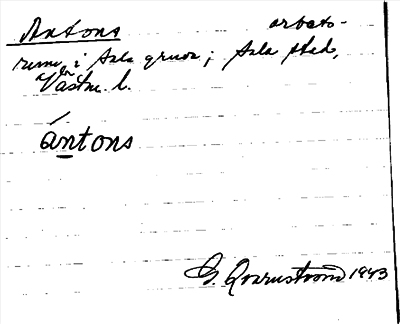 Antons arbets-
rum, i Sala gruva; Sala stad,
Västm. l.
ántons
G. Qvarnström 1943